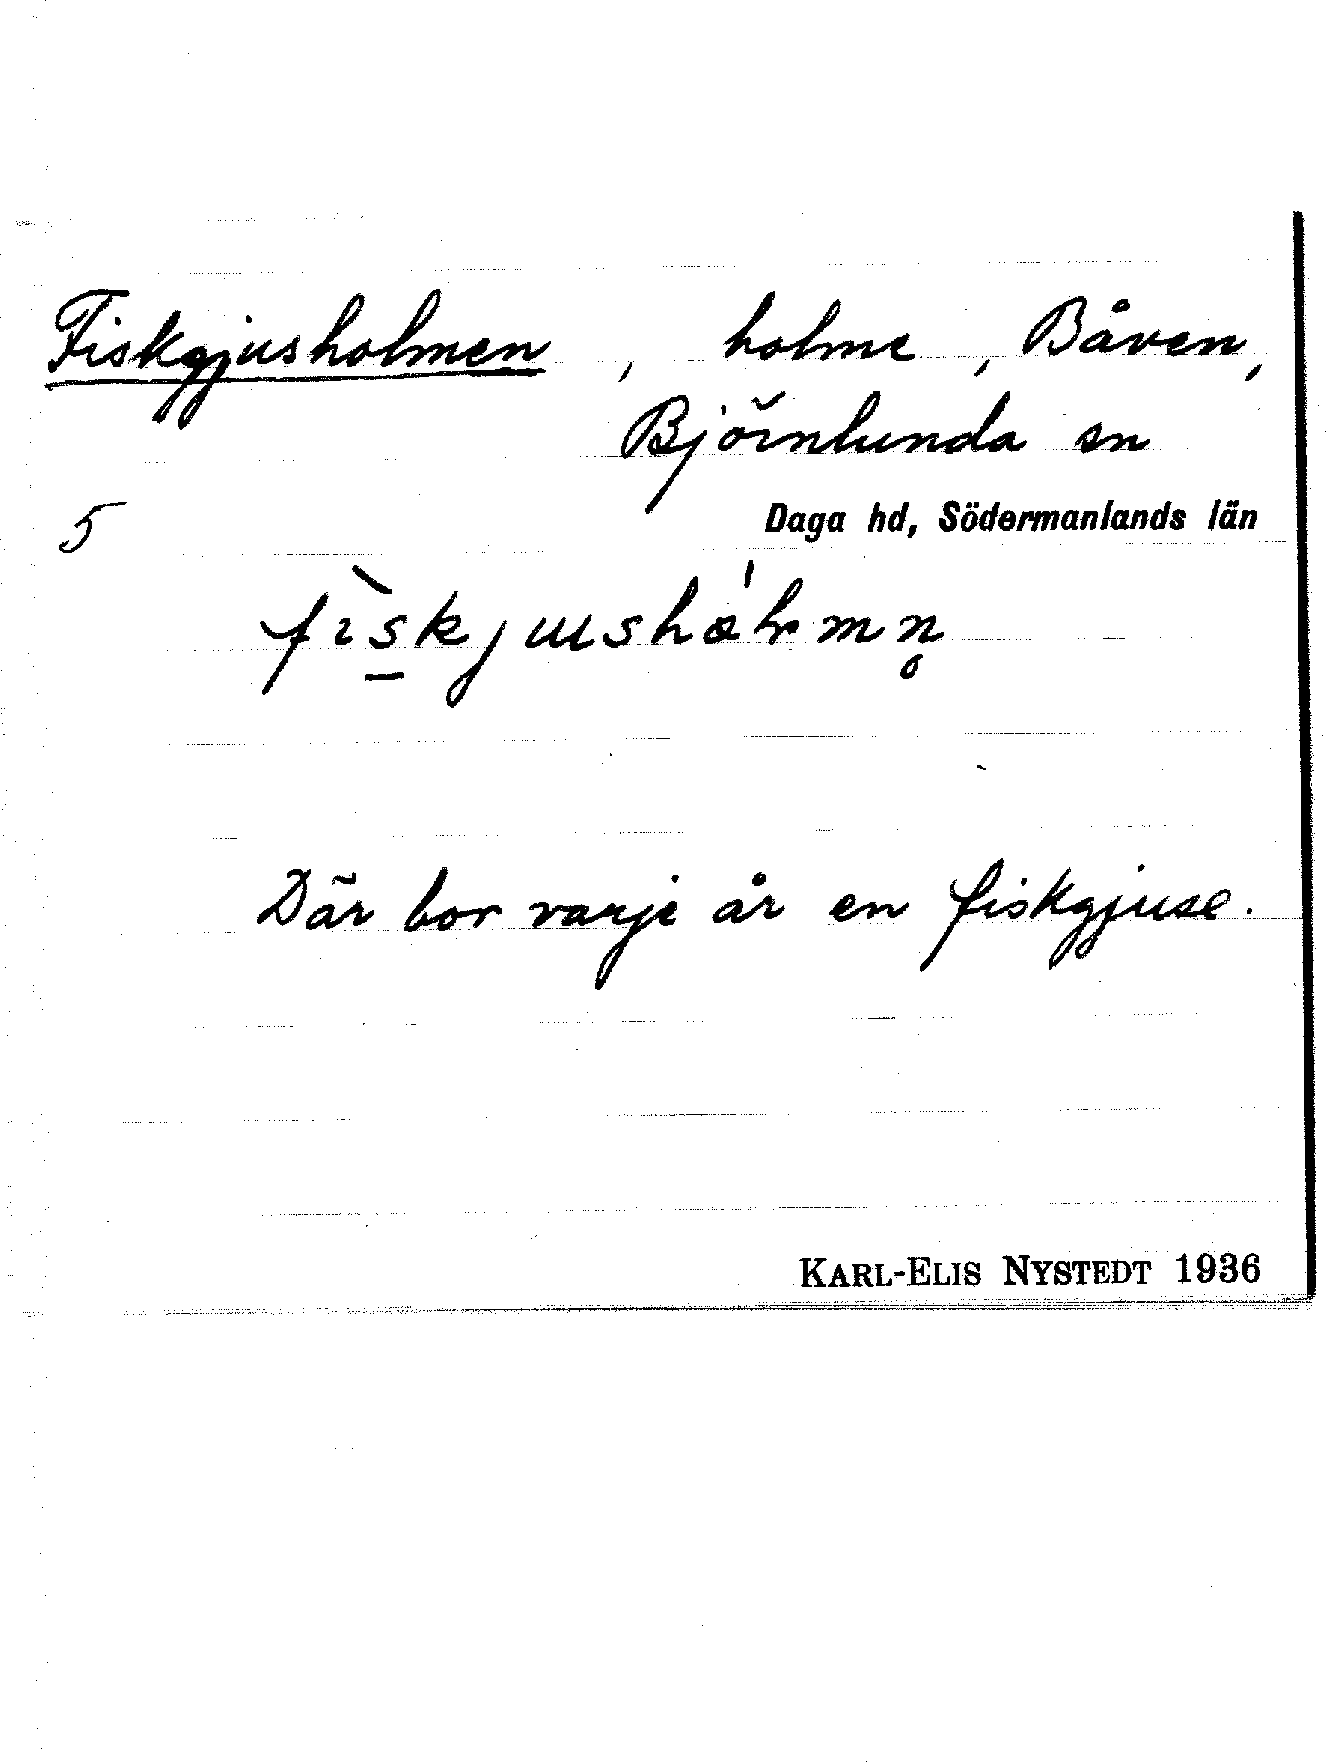 Fiskgjusholmen, holme, Båven,
Björnlunda sn
5 Daga hd, Södermanlands län
fìs̠kjushålmn̥
Där bor varje år en fiskgjuse.
KARL-ELIS NYSTEDT 1936